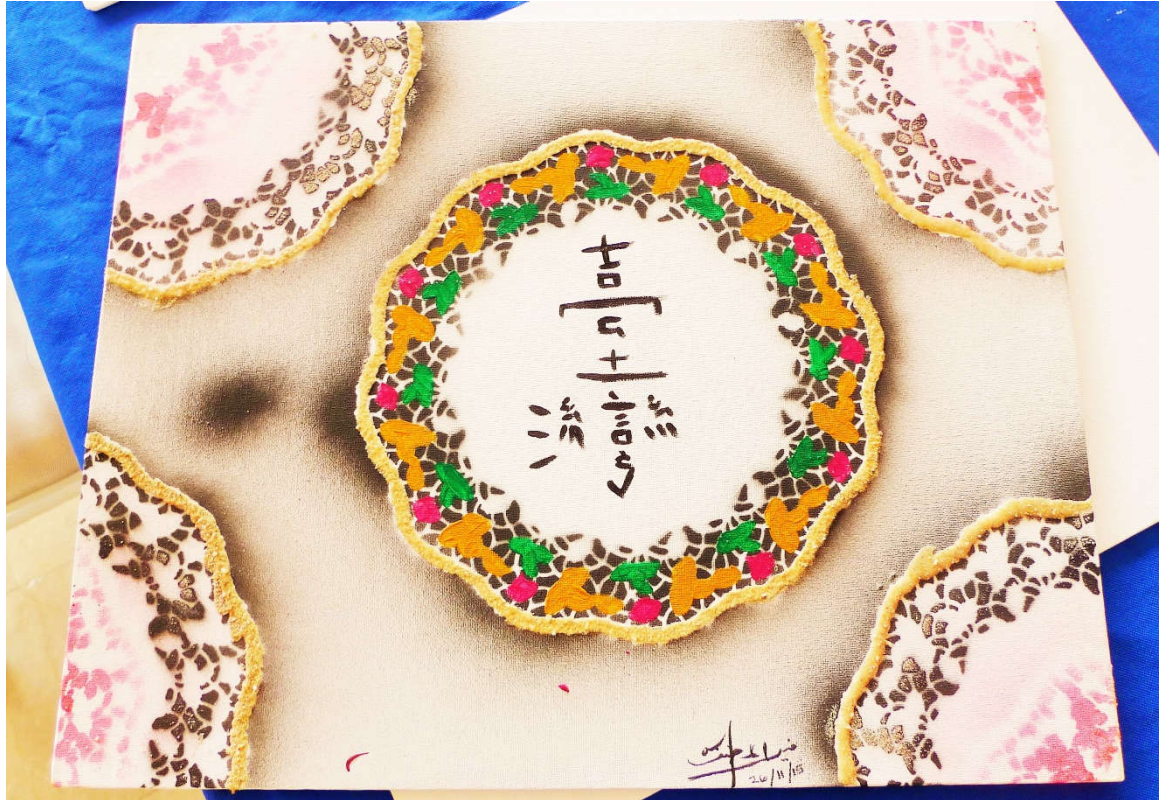 臺灣
26/11/15